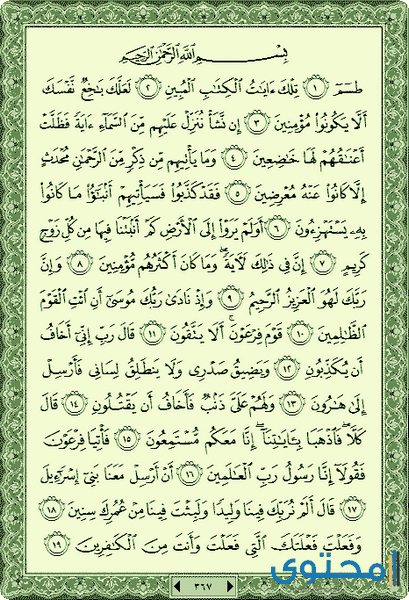 بِسْمِ اللَّهِ الرَّحْمَٰنِ الرَّحِيمِ
طسٓمٓ ١ تِلْكَ ءَايَٰتُ الْكِتَٰبِ الْمُبِينِ ٢ لَعَلَّكَ بَٰخِعٌ نَّفْسَكَ
أَلَّا يَكُونُوا۟ مُؤْمِنِينَ ٣ إِن نَّشَأْ نُنَزِّلْ عَلَيْهِم مِّنَ السَّمَآءِ ءَايَةً فَظَلَّتْ
أَعْنَٰقُهُمْ لَهَا خَٰضِعِينَ ٤ وَمَا يَأْتِيهِم مِّن ذِكْرٍ مِّنَ الرَّحْمَٰنِ مُحْدَثٍ
إِلَّا كَانُوا۟ عَنْهُ مُعْرِضِينَ ٥ فَقَدْ كَذَّبُوا۟ فَسَيَأْتِيهِمْ أَنۢبَٰٓؤُا۟ مَا كَانُوا۟
بِهِۦ يَسْتَهْزِءُونَ ٦ أَوَلَمْ يَرَوْا۟ إِلَى الْأَرْضِ كَمْ أَنۢبَتْنَا فِيهَا مِن كُلِّ زَوْجٍ
كَرِيمٍ ٧ إِنَّ فِى ذَٰلِكَ لَءَايَةً ۖ وَمَا كَانَ أَكْثَرُهُم مُّؤْمِنِينَ ٨ وَإِنَّ
رَبَّكَ لَهُوَ الْعَزِيزُ الرَّحِيمُ ٩ وَإِذْ نَادَىٰ رَبُّكَ مُوسَىٰٓ أَنِ ائْتِ الْقَوْمَ
الظَّٰلِمِينَ ١٠ قَوْمَ فِرْعَوْنَ ۚ أَلَا يَتَّقُونَ ١١ قَالَ رَبِّ إِنِّىٓ أَخَافُ
أَن يُكَذِّبُونِ ١٢ وَيَضِيقُ صَدْرِى وَلَا يَنطَلِقُ لِسَانِى فَأَرْسِلْ
إِلَىٰ هَٰرُونَ ١٣ وَلَهُمْ عَلَىَّ ذَنۢبٌ فَأَخَافُ أَن يَقْتُلُونِ ١٤ قَالَ
كَلَّا ۖ فَاذْهَبَا بِـَٔايَٰتِنَآ ۖ إِنَّا مَعَكُم مُّسْتَمِعُونَ ١٥ فَأْتِيَا فِرْعَوْنَ
فَقُولَآ إِنَّا رَسُولُ رَبِّ الْعَٰلَمِينَ ١٦ أَنْ أَرْسِلْ مَعَنَا بَنِىٓ إِسْرَٰٓءِيلَ
١٧ قَالَ أَلَمْ نُرَبِّكَ فِينَا وَلِيدًا وَلَبِثْتَ فِينَا مِنْ عُمُرِكَ سِنِينَ ١٨
وَفَعَلْتَ فَعْلَتَكَ الَّتِى فَعَلْتَ وَأَنتَ مِنَ الْكَٰفِرِينَ ١٩
٣٦٧
محتوى